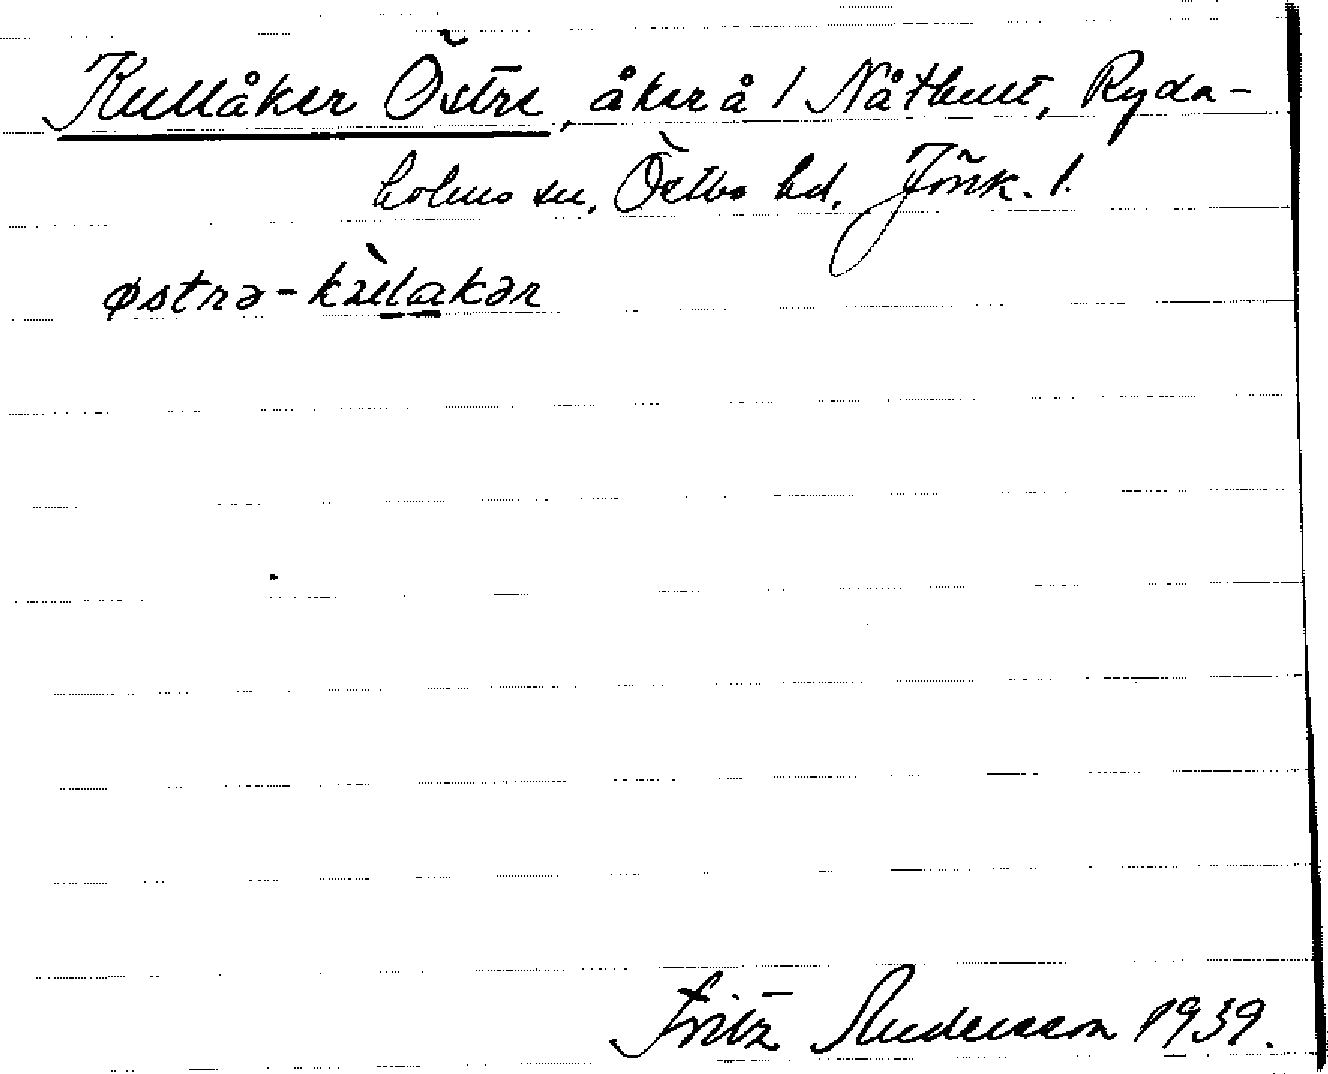 Kullåker Östre, åker å 1 Nåthult, Ryda-
holms sn, Östbo hd, Jönk. l.
østrə-kùlakər
Fritz Andersson 1939.